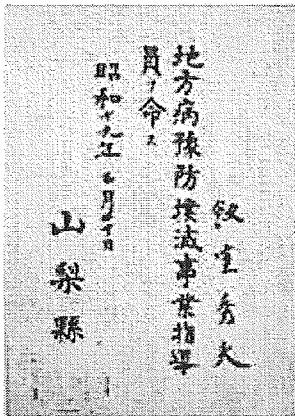 室秀夫
地方病豫防撲滅事業指導
員ヲ命ス
昭和十九年 月 十日
山梨縣